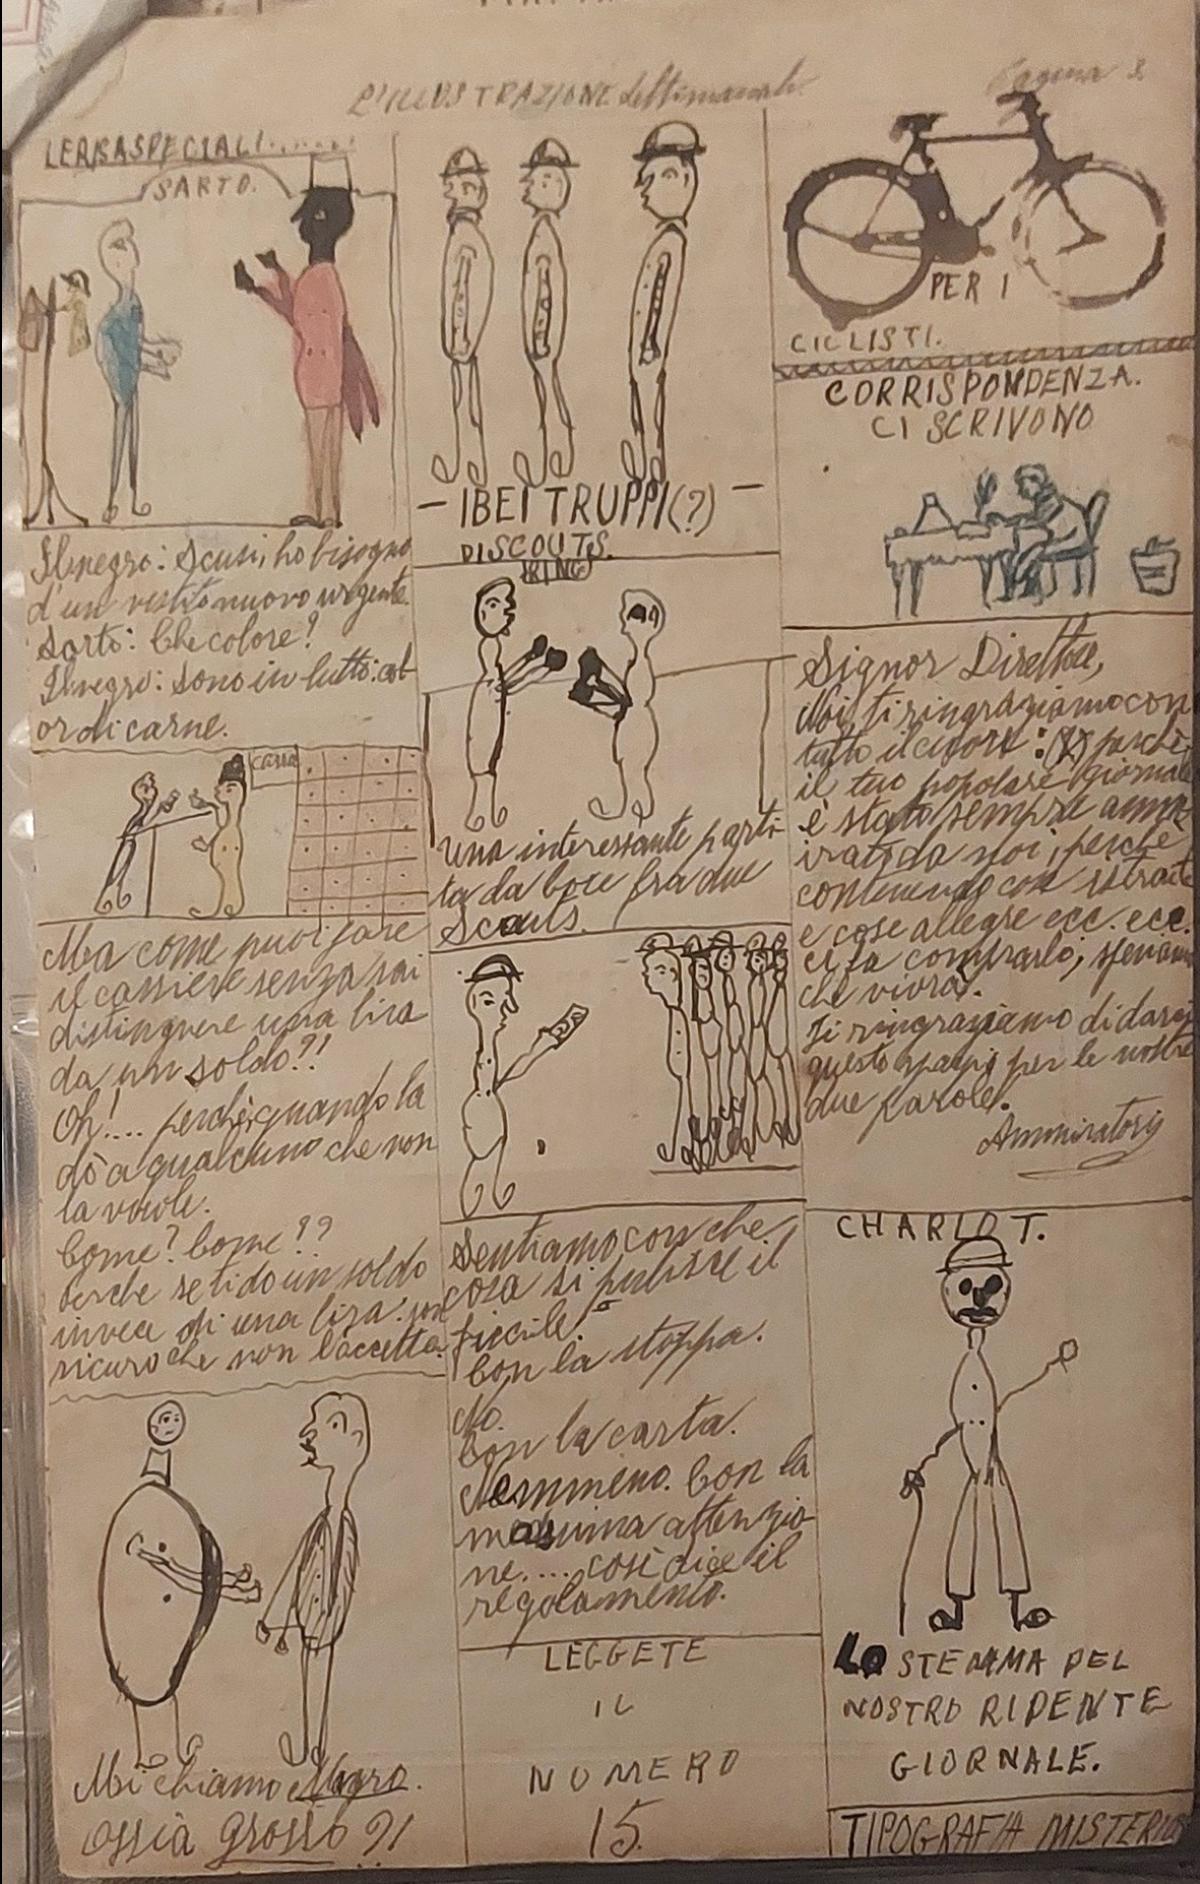 L'ILLUSTRAZIONE settimanale.
Pagina 3.
SPECIALI......
SARTO.
Il negro: Scusi, ho bisogno
d'un vestito nuovo urgente.
Sarto: Che colore?
Il negro: Sono in lutto: col-
or di carne.
cassa
Ma come puoi fare
il cassiere senza sai
distinguere una lira
da un soldo?!
Oh!.... perchè, quando la
dò a qualcuno che non
la vuole.
Come? Come??
Perche se ti do un soldo
invece di una lira, son
sicuro che non l'accetta.
Mi chiamo Magro.
Ossia grosso?!
— I BEI TRUPPI (?) —
DI SCOUTS.
RING
una interessante parti-
ta da boce fra due
Scouts.
Sentiamo con che
cosa si pulisce il
fucile?
Con la stoppa.
No.
Con la carta.
Nemmeno. Con la
massima attenzio-
ne.... così dice il
regolamento.
LEGGETE
IL
NUMERO
15.
PER I
CICLISTI.
CORRISPONDENZA.
CI SCRIVONO
Signor Direttore,
Noi ti ringraziamo con
tutto il cuore: perchè
il tuo popolare giornale
è stato sempre amm-
irato da noi, perchè
contenendo cose istruite
e cose allegre ecc. ecc.
ci fa comprarlo, speriamo
che vivrà.
Ti ringraziamo di darci
questo spazio per le nostre
due parole.
Ammiratori
CHARLOT.
LO STEMMA DEL
NOSTRO RIDENTE
GIORNALE.
TIPOGRAFIA